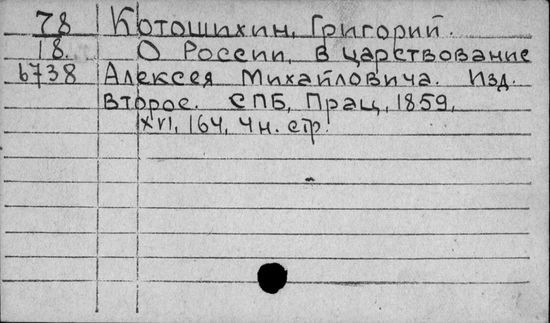 78 Котошихин, Григорий.
18. О России, в царствование
6738 Алексея Михайловича. Изд.
второе. СПБ, Прац, 1859,
XVI, 164, 4 н. стр.